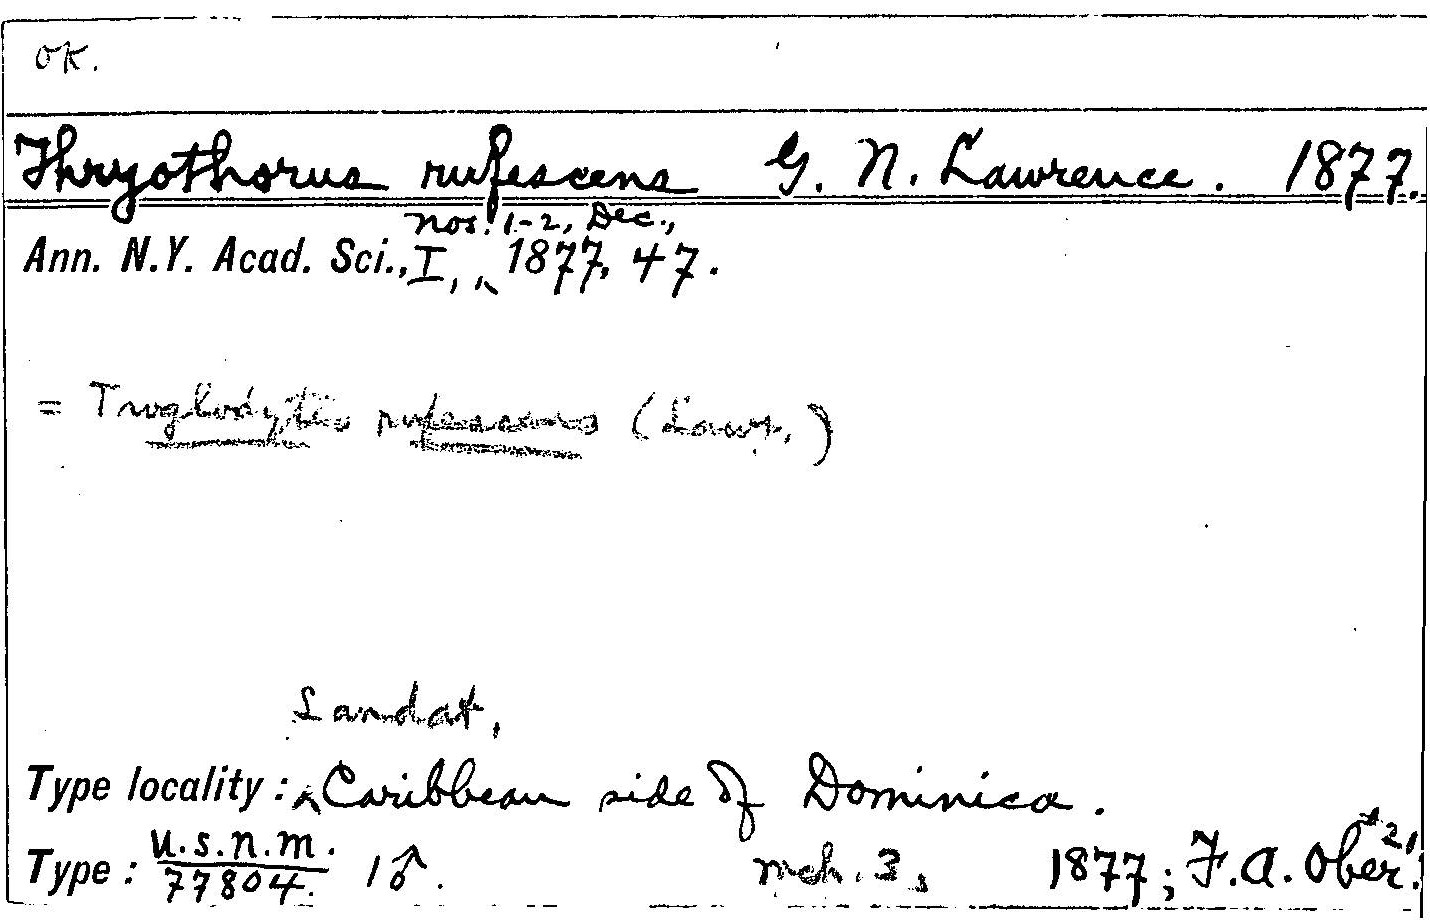 OK.
Thryothorus rufescens G. N. Lawrence. 1877.
nos. 1-2, Dec.,
Ann. N.Y. Acad. Sci., I, ‸ 1877, 47.
= Troglodytes rufescens (Lawr.)
Landat,
Type locality: ‸ Caribbean side of Dominica.
Type: U.S.N.M. 77804. 1♂. mch. 3, 1877; F. A. Ober. #21